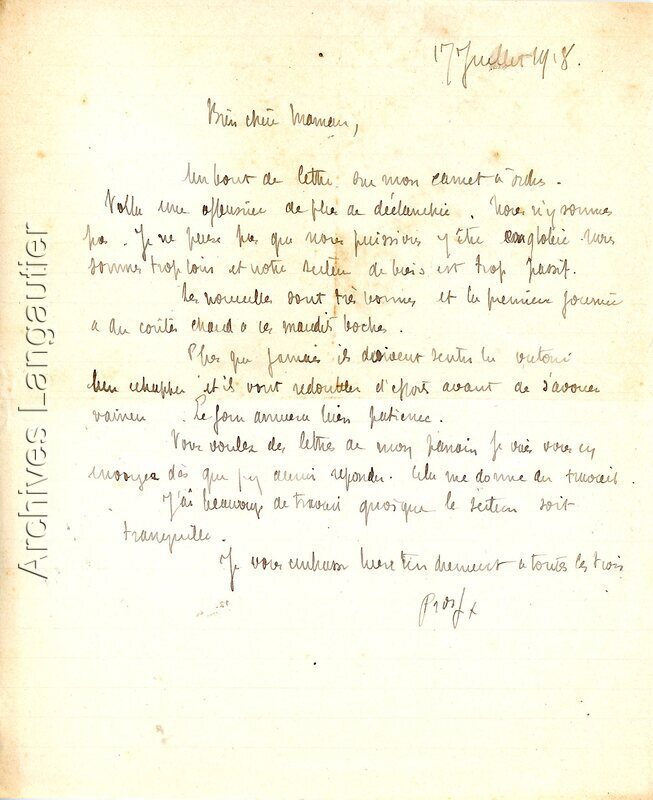 17 Juillet 1918.
Bien chère Maman,
Un bout de lettre sur mon carnet à ordres.
Voilà une offensive de plus de déclanchée. Nous n'y sommes
pas. Je ne pense pas que nous puissions y être englobés. Nous
sommes trop loin et notre secteur de bois est trop passif.
Les nouvelles sont très bonnes et la première journée
a du coûter chaud a ces maudits boches.
Plus que jamais ils doivent sentir la victoire
leur échapper et ils vont redoubler d'efforts avant de s'avouer
vaincu. Le jour arrivera bien patience.
Vous voulez des lettres de mon parrain je vais vous en
envoyer dès que j'y aurai répondu. Cela me donne du travail.
J'ai beaucoup de travail quoique le secteur soit
tranquille.
Je vous embrasse bien tendrement a toutes les trois
Archives Langautier